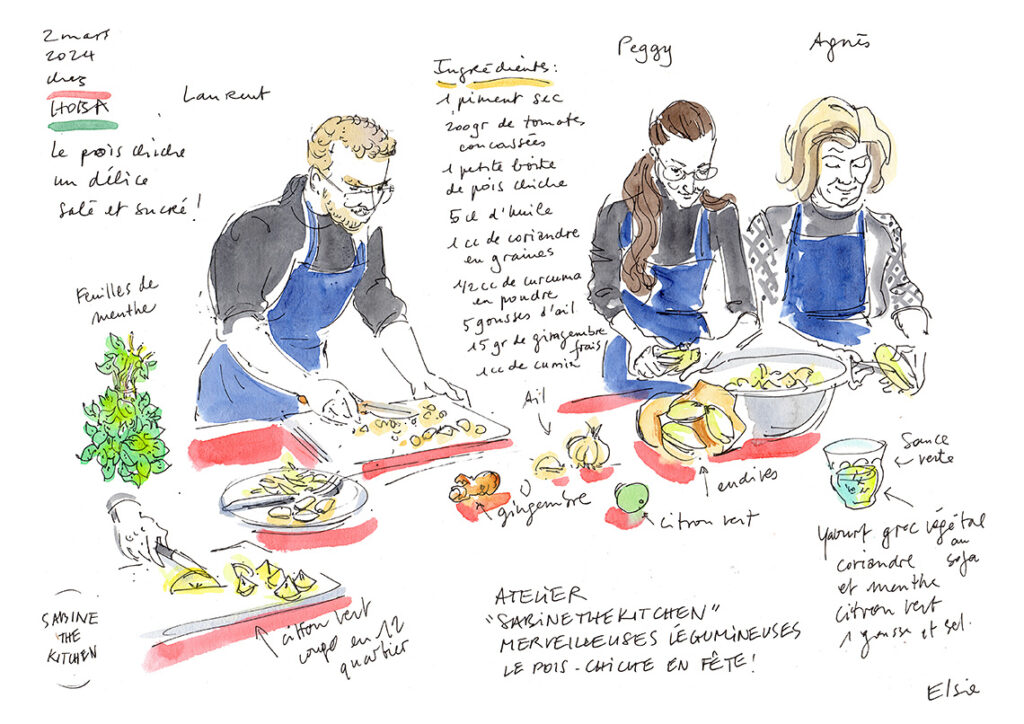 2 mars
2024
chez
HOBA
Le pois chiche
un délice
salé et sucré !
Laurent
Ingrédients :
1 piment sec
200gr de tomates
concassées
1 petite boîte
de pois chiche
5 cl d'huile
1 cc de coriandre
en graines
1/2 cc de curcuma
en poudre
5 gousses d'ail
15 gr de gingembre
frais
1 cc de cumin
Peggy
Agnès
Feuilles de
menthe
Ail
gingembre
citron vert
endives
Sauce
verte
Yaourt grec végétal
au
soja
coriandre
et menthe
citron vert
1 gousse et sel.
citron vert
coupé en 12
quartier
SABINE
THE
KITCHEN
ATELIER
"SABINETHEKITCHEN"
MERVEILLEUSES LÉGUMINEUSES
LE POIS-CHICHE EN FÊTE !
Elsie